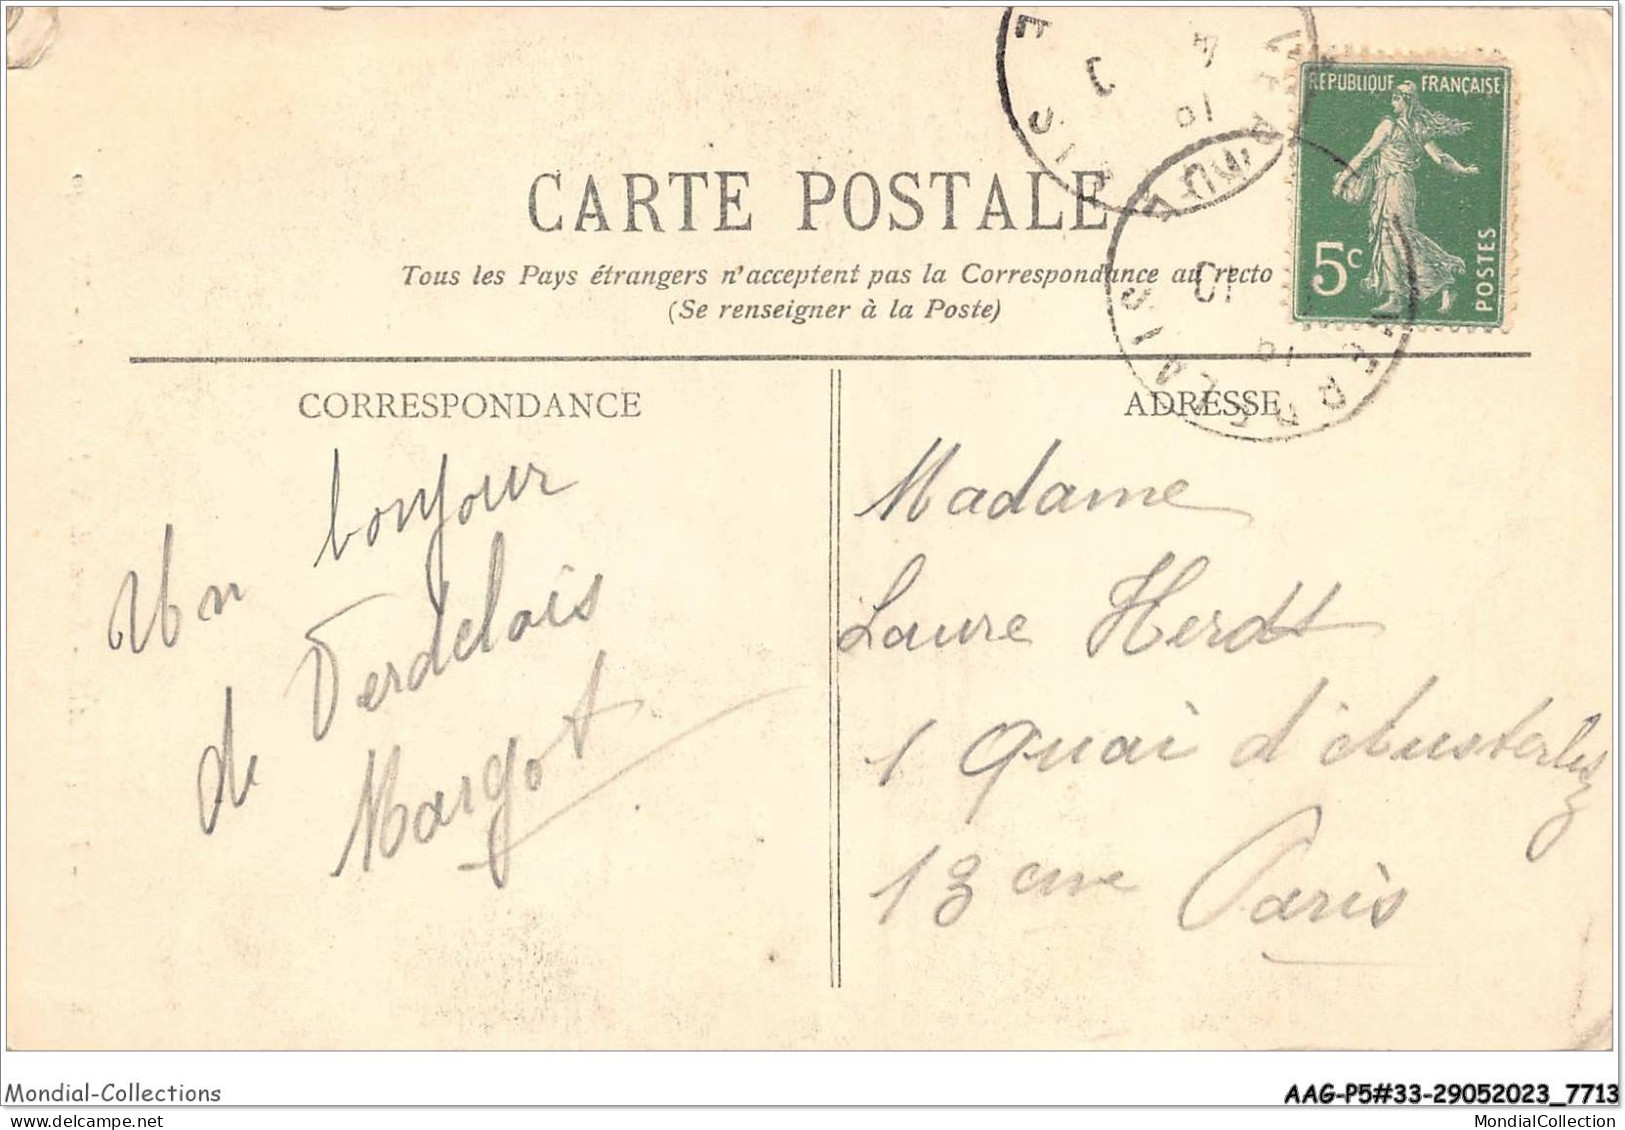 REPUBLIQUE FRANÇAISE
5c
POSTES
CARTE POSTALE
Tous les Pays étrangers n'acceptent pas la Correspondance au recto
(Se renseigner à la Poste)
CORRESPONDANCE
Un bonjour
de Verdelais
Margot
ADRESSE
Madame
Laure Herdt
1 Quai d'Austerlitz
13 eme Paris
Mondial-Collections
AAG-P5#33-29052023_7713
MondialCollection